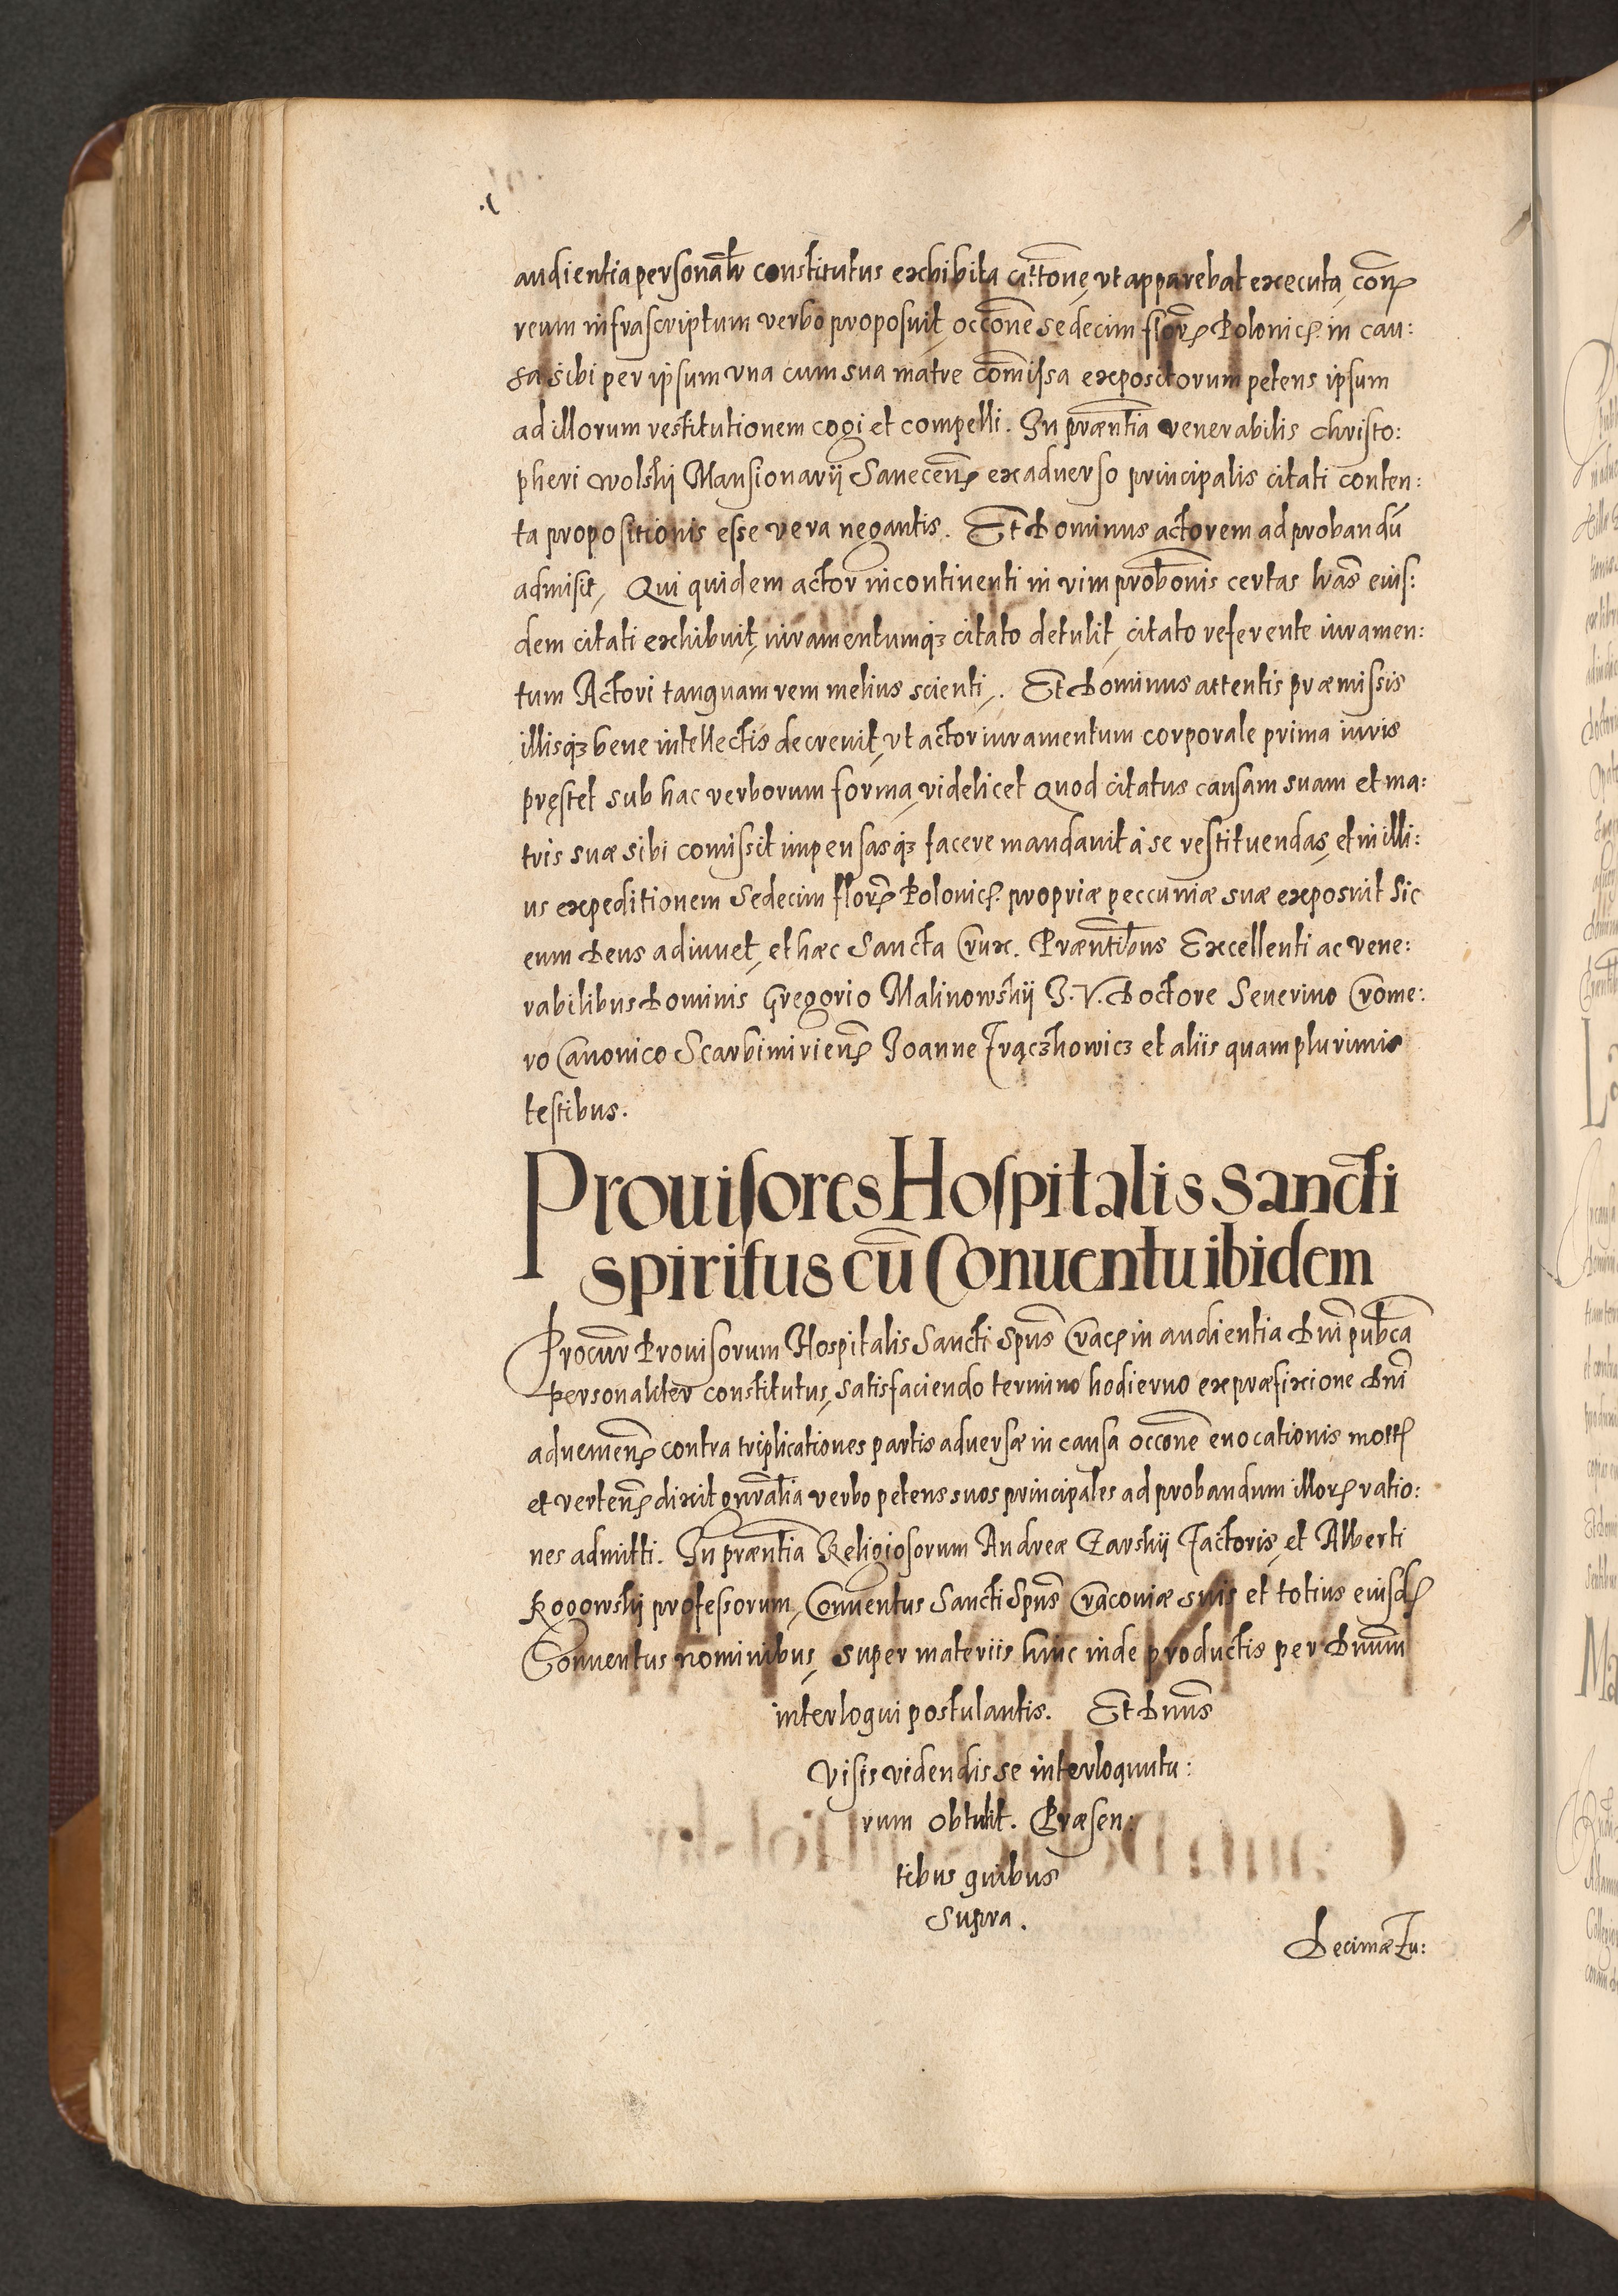 audientia personałr constitutus exhibita citt̃one, vt apparebat executa, coñ
reum infrascriptum verbo proposuit, occ̃one sedecim florẽ Polonic̃. in cau:
sa sibi per ipsum vna cum sua matre com̃issa expositorum petens ipsum
ad illorum restitutionem cogi et compelli. In præñtia venerabilis Christo:
pheri Wolskij Mansionarij Sanecen̄ ex adverso principalis citati conten:
ta propositionis esse vera negantis. Et Dominus actorem ad probandũ
admisit, Qui quidem actor incontinenti in vim prob̃onis certas lr̃as eius:
dem citati exhibuit, iuramentumqꝫ citato detulit, citato referente iuramen:
tum Actori tanquam rem melius scienti,. Et Dominus attentis præmissis
illisqꝫ bene intellectis decrevit, vt actor iuramentum corporale prima iuris
pręstet sub hac verborum forma, videlicet Quod citatus causam suam et ma:
tris suæ sibi comissit impensasqꝫ facere mandavit à se restituendas, et in illi:
us expeditionem Sedecim florẽ Polonic̃. propriæ peccuniæ suæ exposuit Sic
eum Deus adiuvet, et hæc Sancta Crux. Præñtibus Excellenti ac vene:
rabilibus Dominis Gregorio Malinowskij I. V. Doctore Severino Crome:
ro Canonico Scarbimirien̄ Joanne Frączkowicz et aliis quam plurimis
testibus.
Prouisores Hospitalis Sancti
spiritus cũ Conuentu ibidem
Procuṙ Provisorum Hospitalis Sancti Spũs Crac̃ in audientia Dñi publ̃ca
personaliter constitutus, satisfaciendo termino hodierno ex præfixione Dñi
advenien̄ contra triplicationes partis adversæ in causa occ̃one evocationis mott̃
et verten̄ dixit gñralia verbo petens suos principales ad probandum illorꝫ ratio:
nes admitti. In præñtia Religiosorum Andreæ Carskij Factoris, et Alberti
Rogowskij professorum, Conventus Sancti Spũs Cracoviæ suis et totius eiusd̃
Conventus nominibus, super materiis hinc inde productis per Dñum
interloqui postulantis. Et Dñus
Visis videndis se interloquutu:
rum obtulit. Præsen:
tibus quibus
supra.
Decimæ Fu: